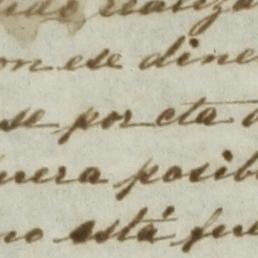 realiza
on ese dine
se por cta d
uera posib
no está fue